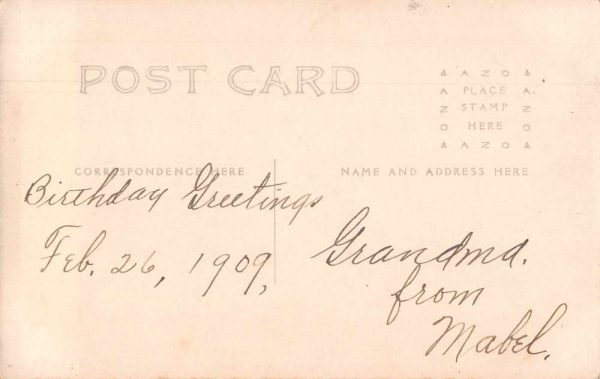 POST CARD
AZO
PLACE
STAMP
HERE
AZO
CORRESPONDENCE HERE
NAME AND ADDRESS HERE
Birthday Greetings
Feb. 26, 1909,
Grandma.
from
Mabel.